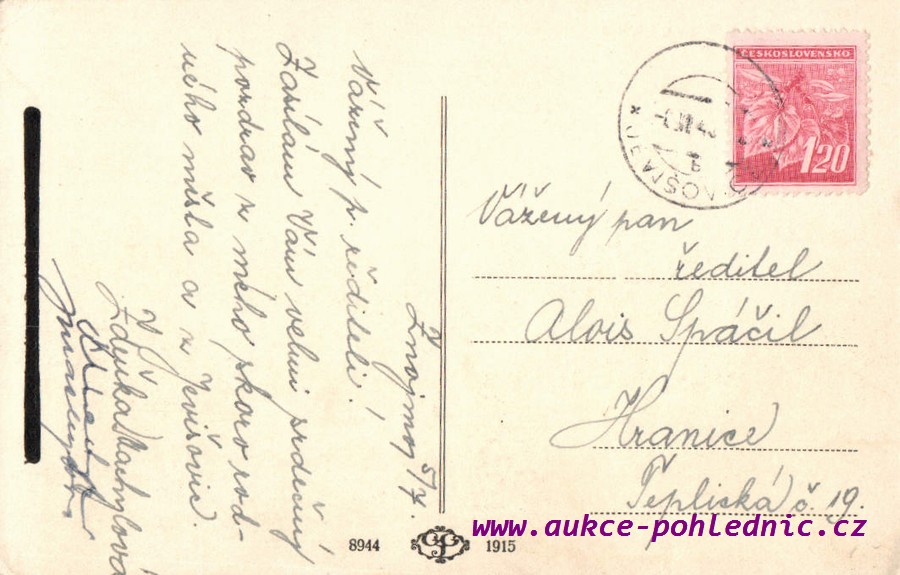 Znojmo, 5/7.
Vážený p. řediteli!
Zasílám Vám velmi srdečný
pozdrav z mého skoro rod-
ného města a z Jevišovic.
Zdeňka
ČESKOSLOVENSKO
1.20
Vážený pan
ředitel
Alois Spáčil
Hranice
Teplická č. 19.
8944
1915
www.aukce-pohlednic.cz